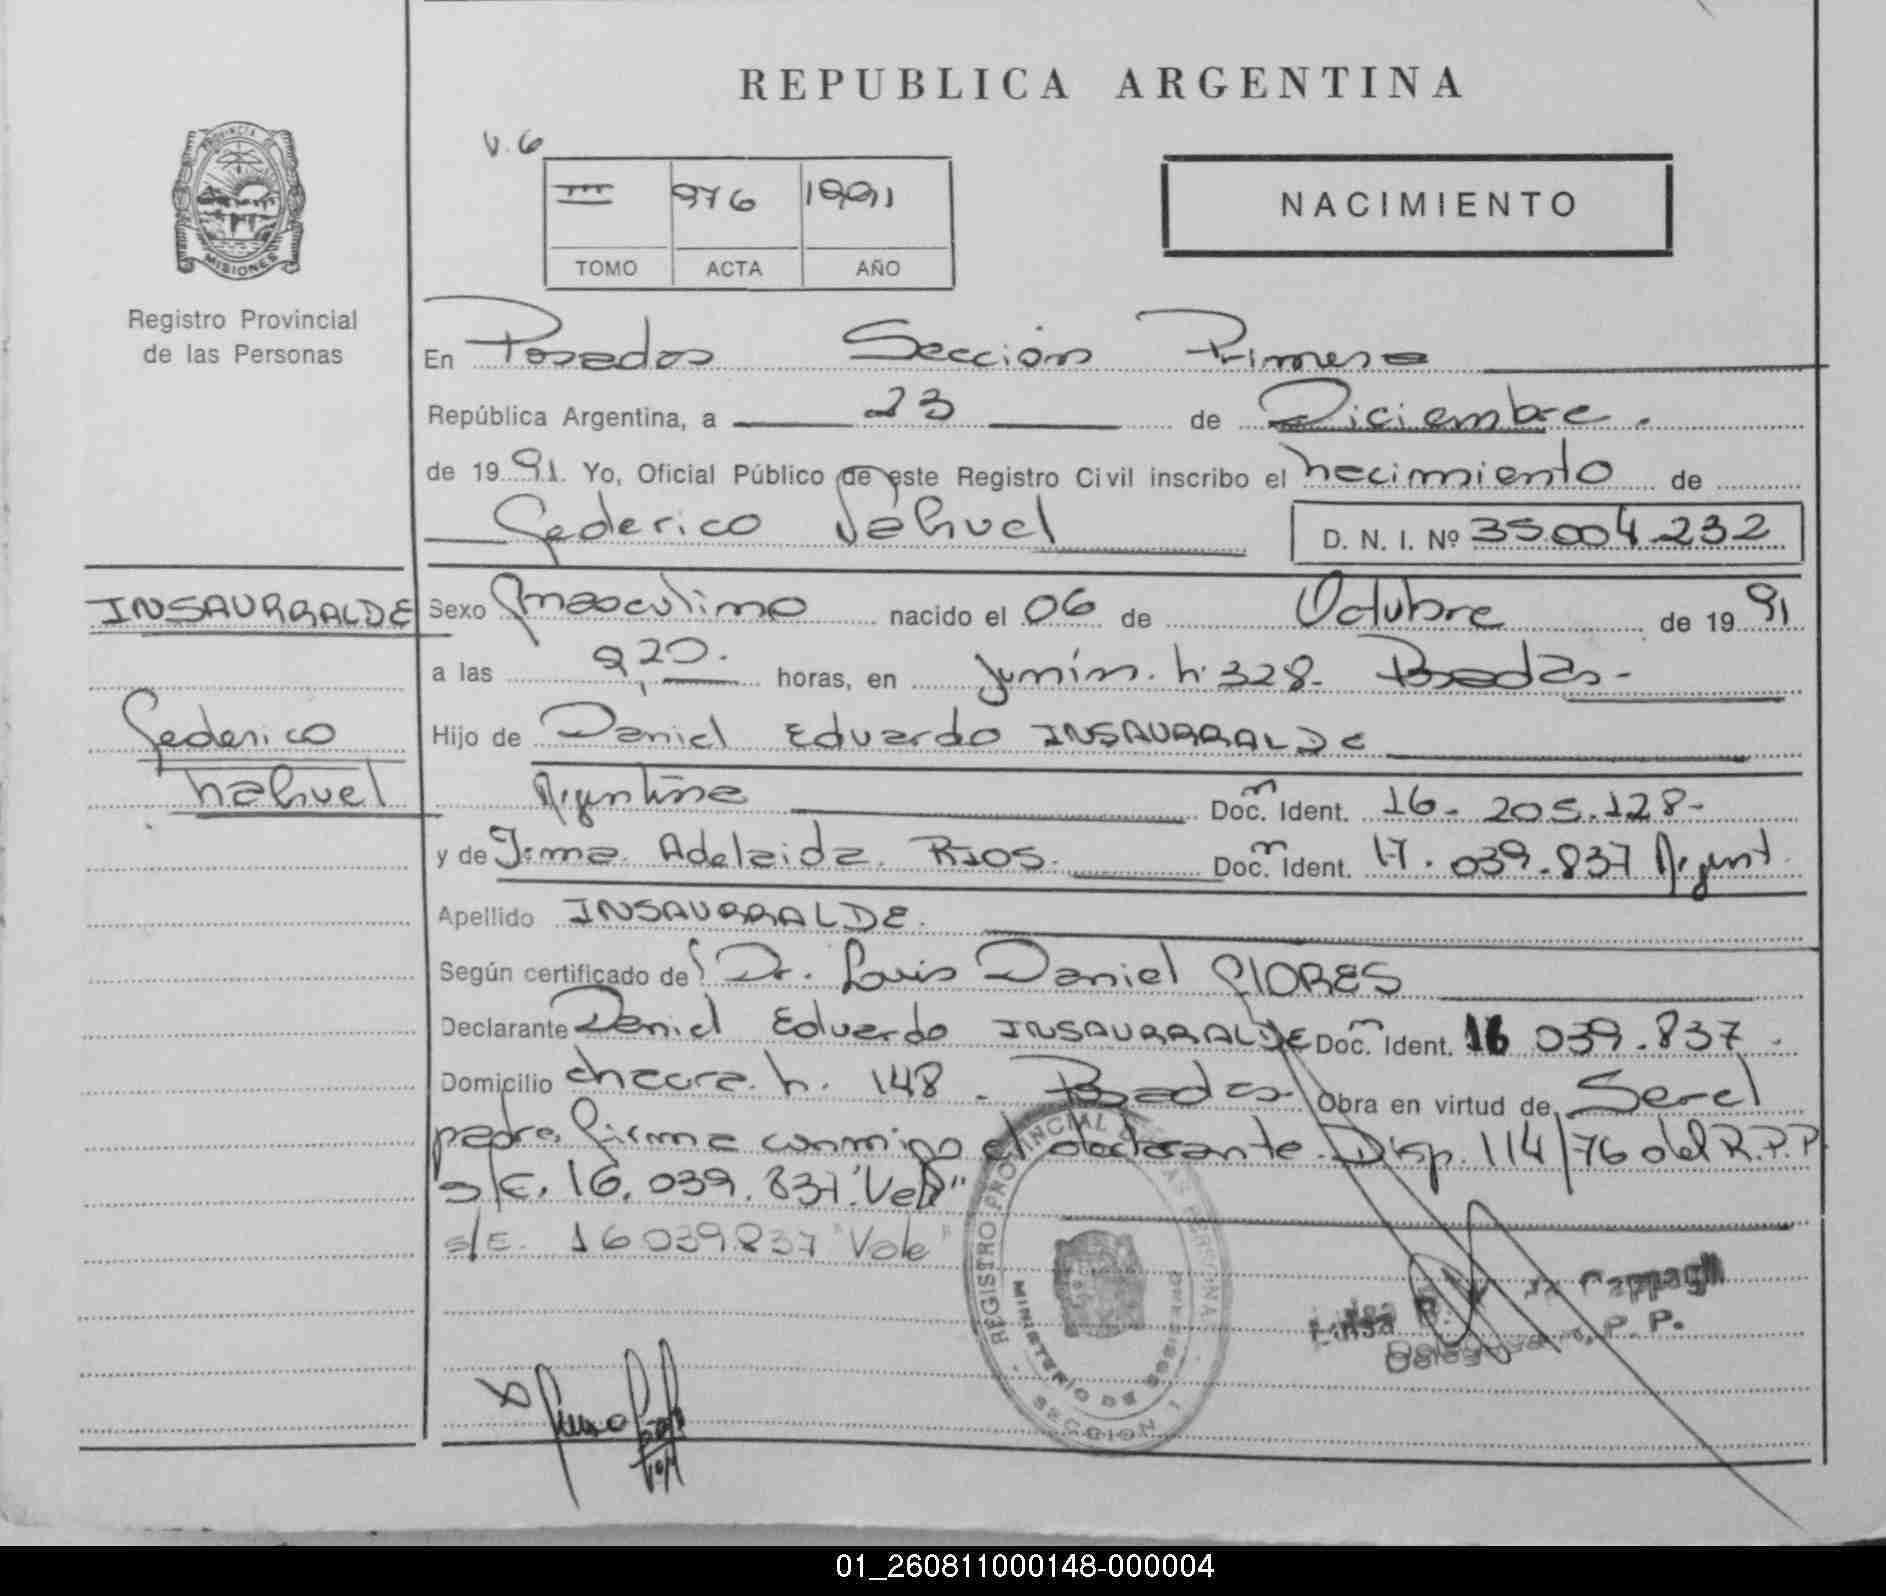 REPUBLICA ARGENTINA
V. 6
III 976 1991
TOMO ACTA AÑO
NACIMIENTO
PROVINCIA DE
MISIONES
Registro Provincial
de las Personas
En Posadas Sección Primera
República Argentina, a 23 de Diciembre.
de 1991. Yo, Oficial Público de este Registro Civil inscribo el nacimiento de
Federico Nahuel D. N. I. Nº 35.004.232
INSAURRALDE
Federico
nahuel
Sexo masculino nacido el 06 de Octubre de 1991
a las 9,20. horas, en Junín. n. 328. Posadas-
Hijo de Daniel Eduardo INSAURRALDE
Argentina Doc. Ident. 16. 205.128-
y de Irma Adelaida. RIOS. Doc. Ident. 17. 039.837 Argent.
Apellido INSAURRALDE.
Según certificado de Dr. Luis Daniel FLORES
Declarante Daniel Eduardo INSAURRALDE Doc. Ident. 16 039.837.
Domicilio chacra. n. 148. Posadas- Obra en virtud de Ser el
padre. firma conmigo el declarante. Disp. 114/76 del R.P.P
s/E. 16.039.837."Vale"
s/E. 16039837 "Vole"
REGISTRO PROVINCIAL DE LAS PERSONAS
MINISTERIO DE GOBIERNO
SECCION 1
Luisa Cappagli
P. P.
01_260811000148-000004